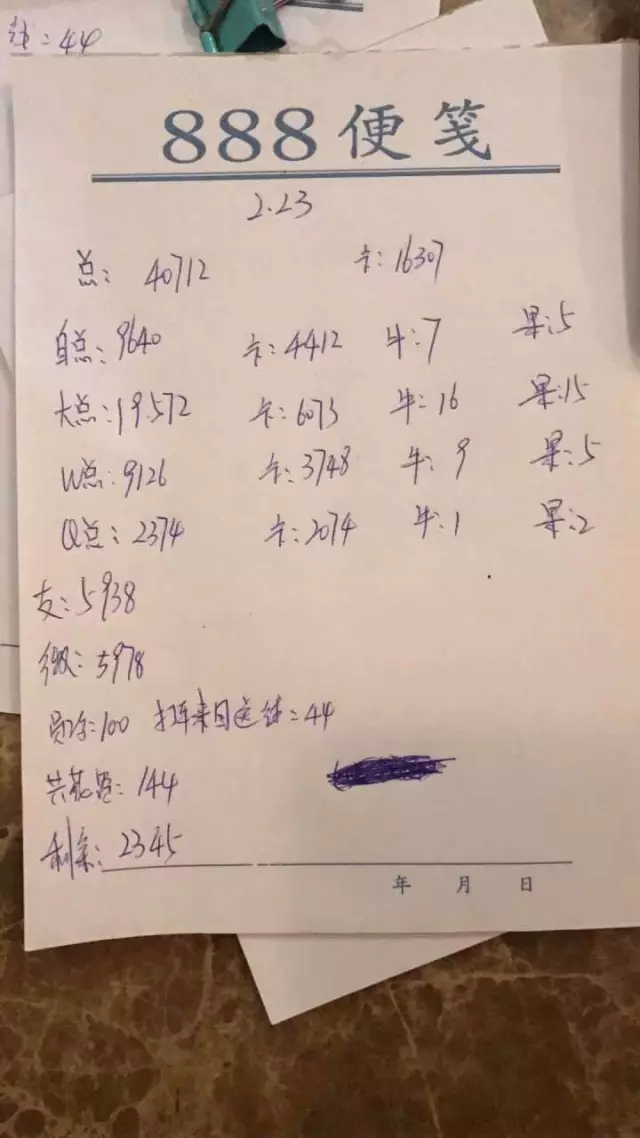 钱:44
888便笺
2.23
总: 40712 卡:16307
自点:9640 卡:4412 牛:7 果:5
大点:19.572 卡:6073 牛:16 果:15
W点:9126 卡:3748 牛:9 果:5
Q点:2374 卡:2074 牛:1 果:2
支:5938
微:5978
:100 打车来回送钱:44
共花:144
剩余:2345
年 月 日